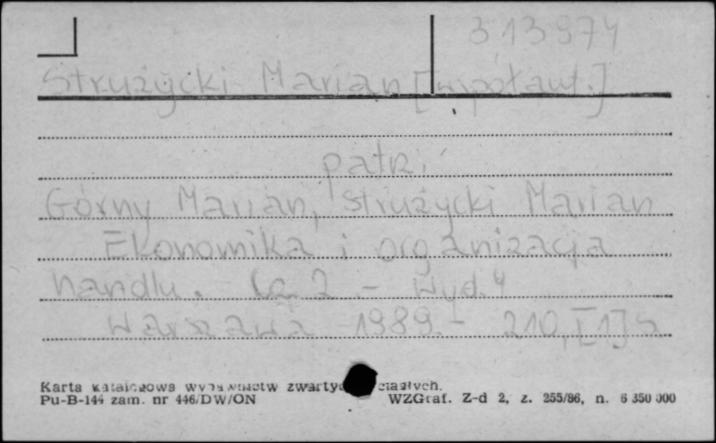 313974
Strużycki Marian [współaut.]
patrz:
Górny Marian, Strużycki Marian
Ekonomika i organizacja
handlu. Cz. 2. - Wyd. 4
Warszawa 1989. - 210, [1] s
Karta katalogowa wydawnictw zwartych ciągłych.
Pu-B-144 zam. nr 446/DW/ON WZGraf. Z-d 2, z. 255/86, n. 6 350 000